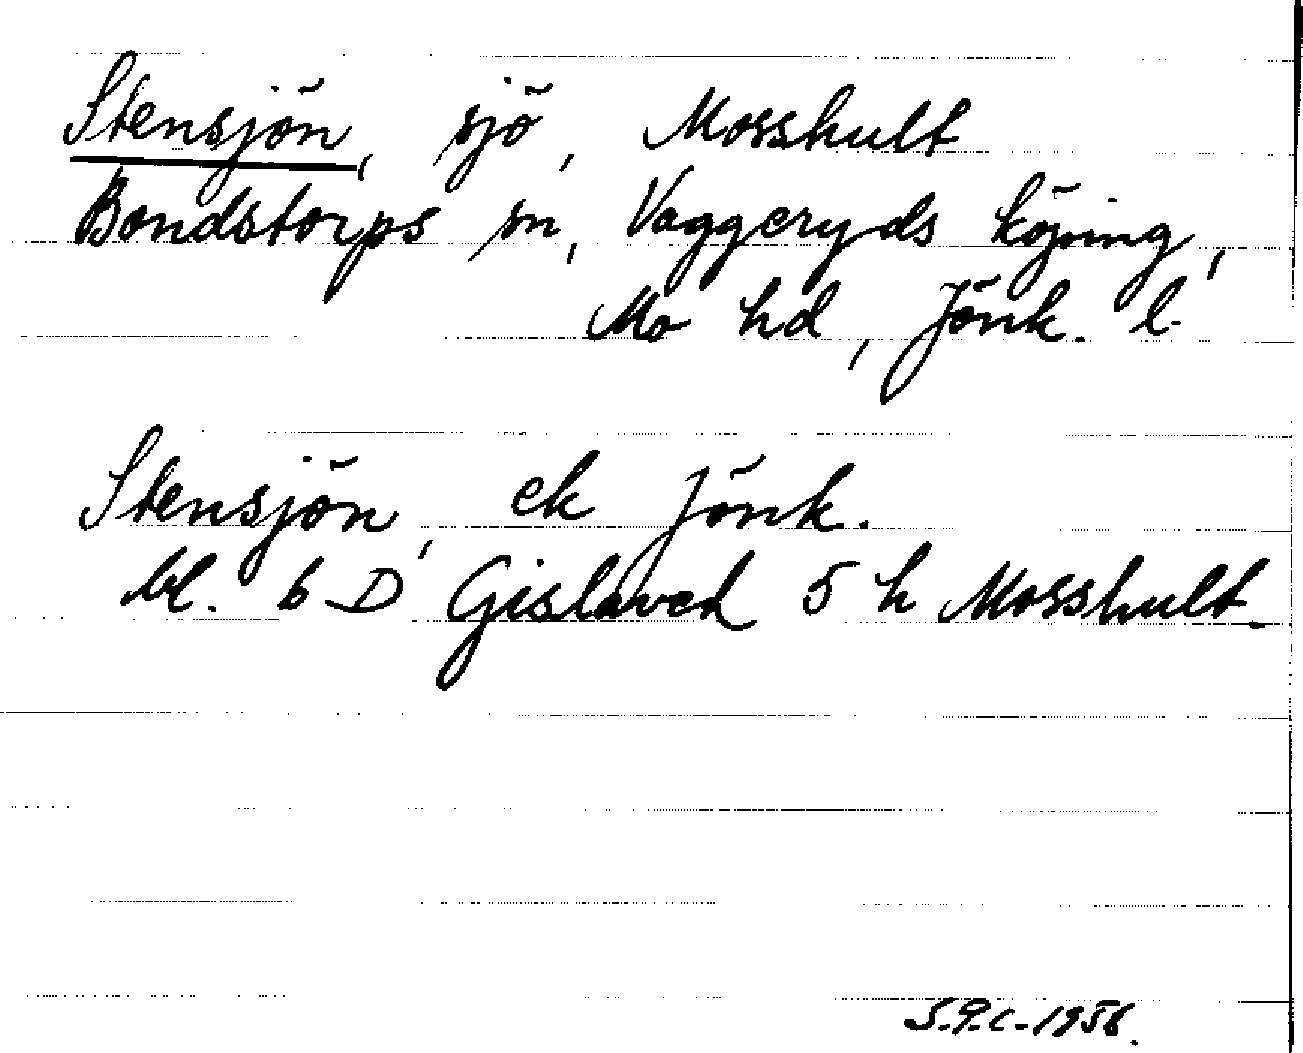 Stensjön, sjö, Mosshult
Bondstorps sn, Vaggeryds köping,
Mo hd, Jönk. l.
Stensjön, ek Jönk.
bl. 6 D Gislaved 5 h Mosshult.